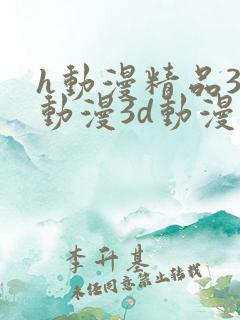 h動漫精品3
動漫3d動漫
李升基
未经同意禁止转载